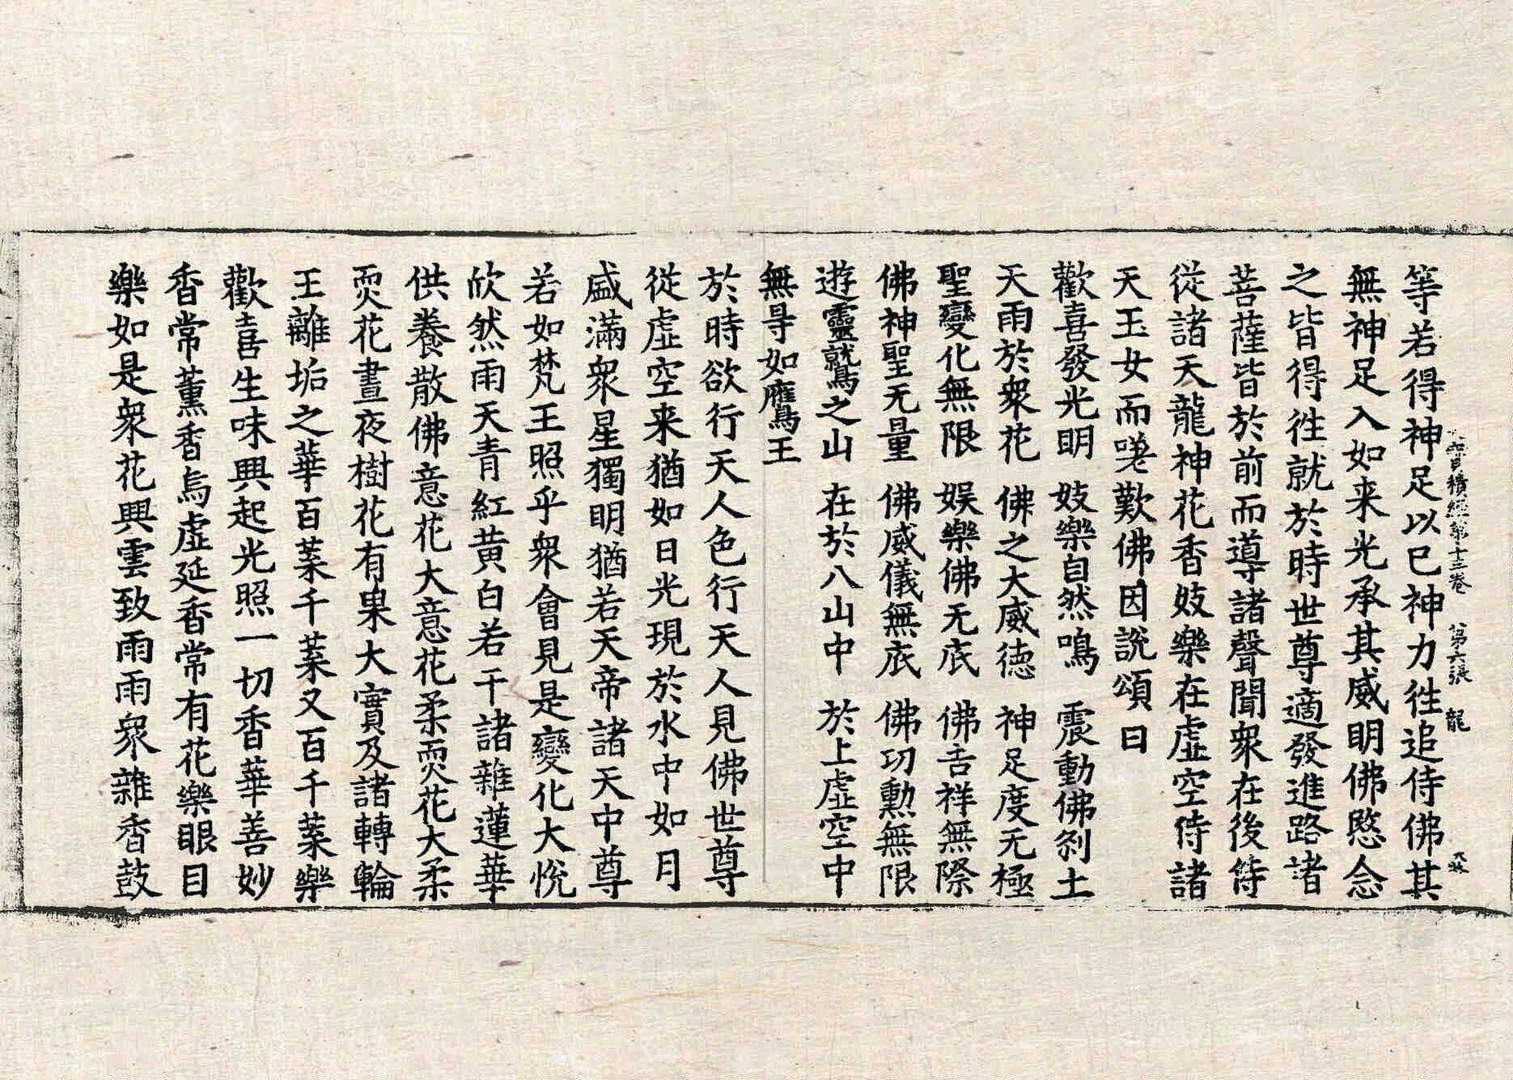 大寶積經第十三卷 第六張 龍
等若得神足以已神力徃追侍佛其
無神足入如来光承其威明佛愍念
之皆得徃就於時世尊適發進路諸
菩薩皆於前而導諸聲聞衆在後侍
從諸天龍神花香妓樂在虛空侍諸
天玉女而嗟歎佛因說頌曰
歡喜發光明 妓樂自然鳴 震動佛刹土
天雨於衆花 佛之大威徳 神足度无極
聖變化無限 娱樂佛无底 佛吉祥無際
佛神聖无量 佛威儀無底 佛功勲無限
遊靈鷲之山 在於八山中 於上虛空中
無㝵如鴈王
於時欲行天人色行天人見佛世尊
從虛空来猶如日光現於水中如月
盛滿衆星獨明猶若天帝諸天中尊
若如梵王照乎衆會見是變化大悅
欣然雨天青紅黃白若干諸雜蓮華
供養散佛意花大意花柔耎花大柔
耎花晝夜樹花有果大實及諸轉輪
王離垢之華百葉千葉又百千葉樂
歡喜生味興起光照一切香華善妙
香常薰香烏虛延香常有花樂眼目
樂如是衆花興雲致雨雨衆雜香鼓